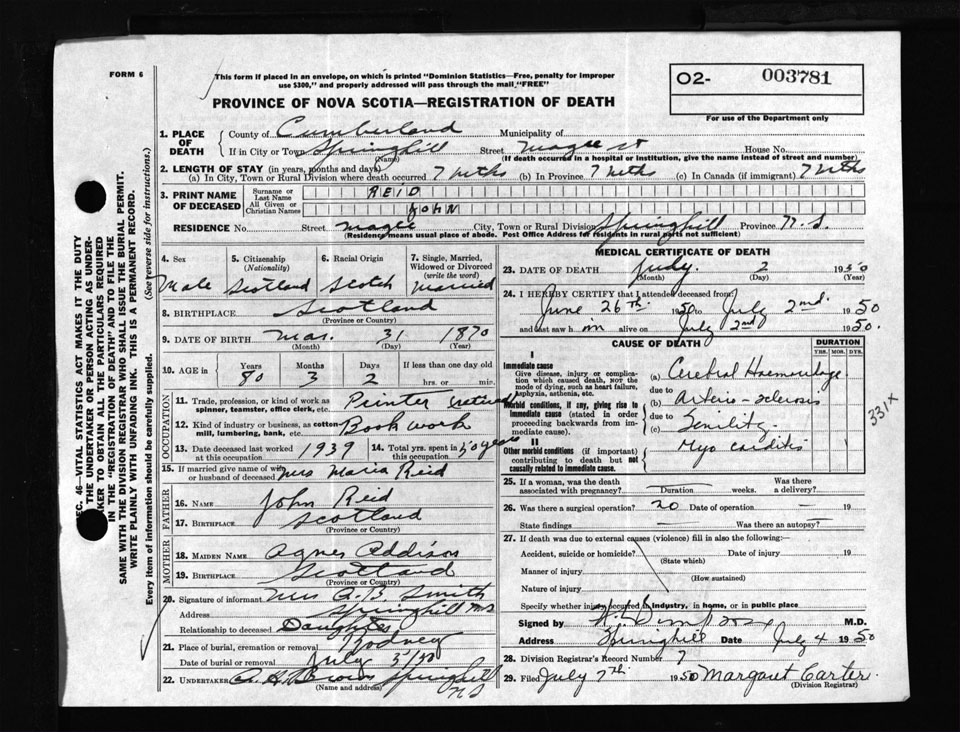 FORM 6
This form if placed in an envelope, on which is printed "Dominion Statistics—Free, penalty for improper
use $300," and properly addressed will pass through the mail "FREE"
O2- 003781
For use of the Department only
PROVINCE OF NOVA SCOTIA—REGISTRATION OF DEATH
1. PLACE OF DEATH
County of Cumberland Municipality of
If in City or Town Springhill Street Magee st House No.
(Name) (If death occurred in a hospital or institution, give the name instead of street and number)
2. LENGTH OF STAY (in years, months and days)
(a) In City, Town or Rural Division where death occurred 7 mths (b) In Province 7 mths (c) In Canada (if immigrant) 7 mths
3. PRINT NAME OF DECEASED
Surname or Last Name REID
All Given or Christian Names JOHN
RESIDENCE No. Street Magee City, Town or Rural Division Springhill Province N.S.
(Residence means usual place of abode. Post Office Address for residents in rural parts not sufficient)
4. Sex 5. Citizenship (Nationality) 6. Racial Origin 7. Single, Married, Widowed or Divorced (write the word)
Male Scotland Scotch Married
8. BIRTHPLACE Scotland
(Province or Country)
9. DATE OF BIRTH Mar. 31 1870
(Month) (Day) (Year)
10. AGE in Years Months Days If less than one day old
80 3 2 hrs. or min.
OCCUPATION
11. Trade, profession or kind of work as spinner, teamster, office clerk, etc. Printer (retired)
12. Kind of industry or business, as cotton mill, lumbering, bank, etc. Book work
13. Date deceased last worked at this occupation 1939 14. Total yrs. spent in this occupation 50 years
15. If married give name of wife or husband of deceased Mrs Maria Reid
FATHER
16. NAME John Reid
17. BIRTHPLACE Scotland
(Province or Country)
MOTHER
18. MAIDEN NAME Agnes Addison
19. BIRTHPLACE Scotland
(Province or Country)
20. Signature of informant Mrs A.B. Smith
Address Springhill NS
Relationship to deceased Daughter
21. Place of burial, cremation or removal Rodney
Date of burial or removal July 5/50
22. UNDERTAKER A.H. Brown Springhill NS
(Name and address)
MEDICAL CERTIFICATE OF DEATH
23. DATE OF DEATH July. 2 1950
(Month) (Day) (Year)
24. I HEREBY CERTIFY that I attended deceased from
June 26th 1950 to July 2nd. 1950
and last saw him alive on July 2nd 1950.
CAUSE OF DEATH DURATION
YRS. MOS. DYS.
I
Immediate cause
Give disease, injury or complication which caused death, NOT the mode of dying, such as heart failure, asphyxia, asthenia, etc.
(a) Cerebral Haemorrhage
due to
Morbid conditions, if any, giving rise to immediate cause (stated in order proceeding backwards from immediate cause).
(b) Arterio-sclerosis
due to
(c) Senility
II
Other morbid conditions (if important) contributing to death but not causally related to immediate cause.
Myocarditis
331X
25. If a woman, was the death associated with pregnancy? Duration weeks. Was there a delivery?
26. Was there a surgical operation? no Date of operation — 19
State findings — Was there an autopsy? —
27. If death was due to external causes (violence) fill in also the following:—
Accident, suicide or homicide? Date of injury 19
(State which)
Manner of injury
(How sustained)
Nature of injury
Specify whether injury occurred in industry, in home, or in public place
Signed by M.D.
Address Springhill Date July 4 1950
28. Division Registrar's Record Number 7
29. Filed July 7th 1950 Margaret Carter
(Division Registrar)
SEC. 46—VITAL STATISTICS ACT MAKES IT THE DUTY
OF THE UNDERTAKER OR PERSON ACTING AS UNDER-
TAKER TO OBTAIN ALL THE PARTICULARS REQUIRED
IN THE "REGISTRATION OF DEATH" AND TO FILE THE
SAME WITH THE DIVISION REGISTRAR WHO SHALL ISSUE THE BURIAL PERMIT.
WRITE PLAINLY WITH UNFADING INK. THIS IS A PERMANENT RECORD.
Every item of information should be carefully supplied. (See reverse side for instructions.)